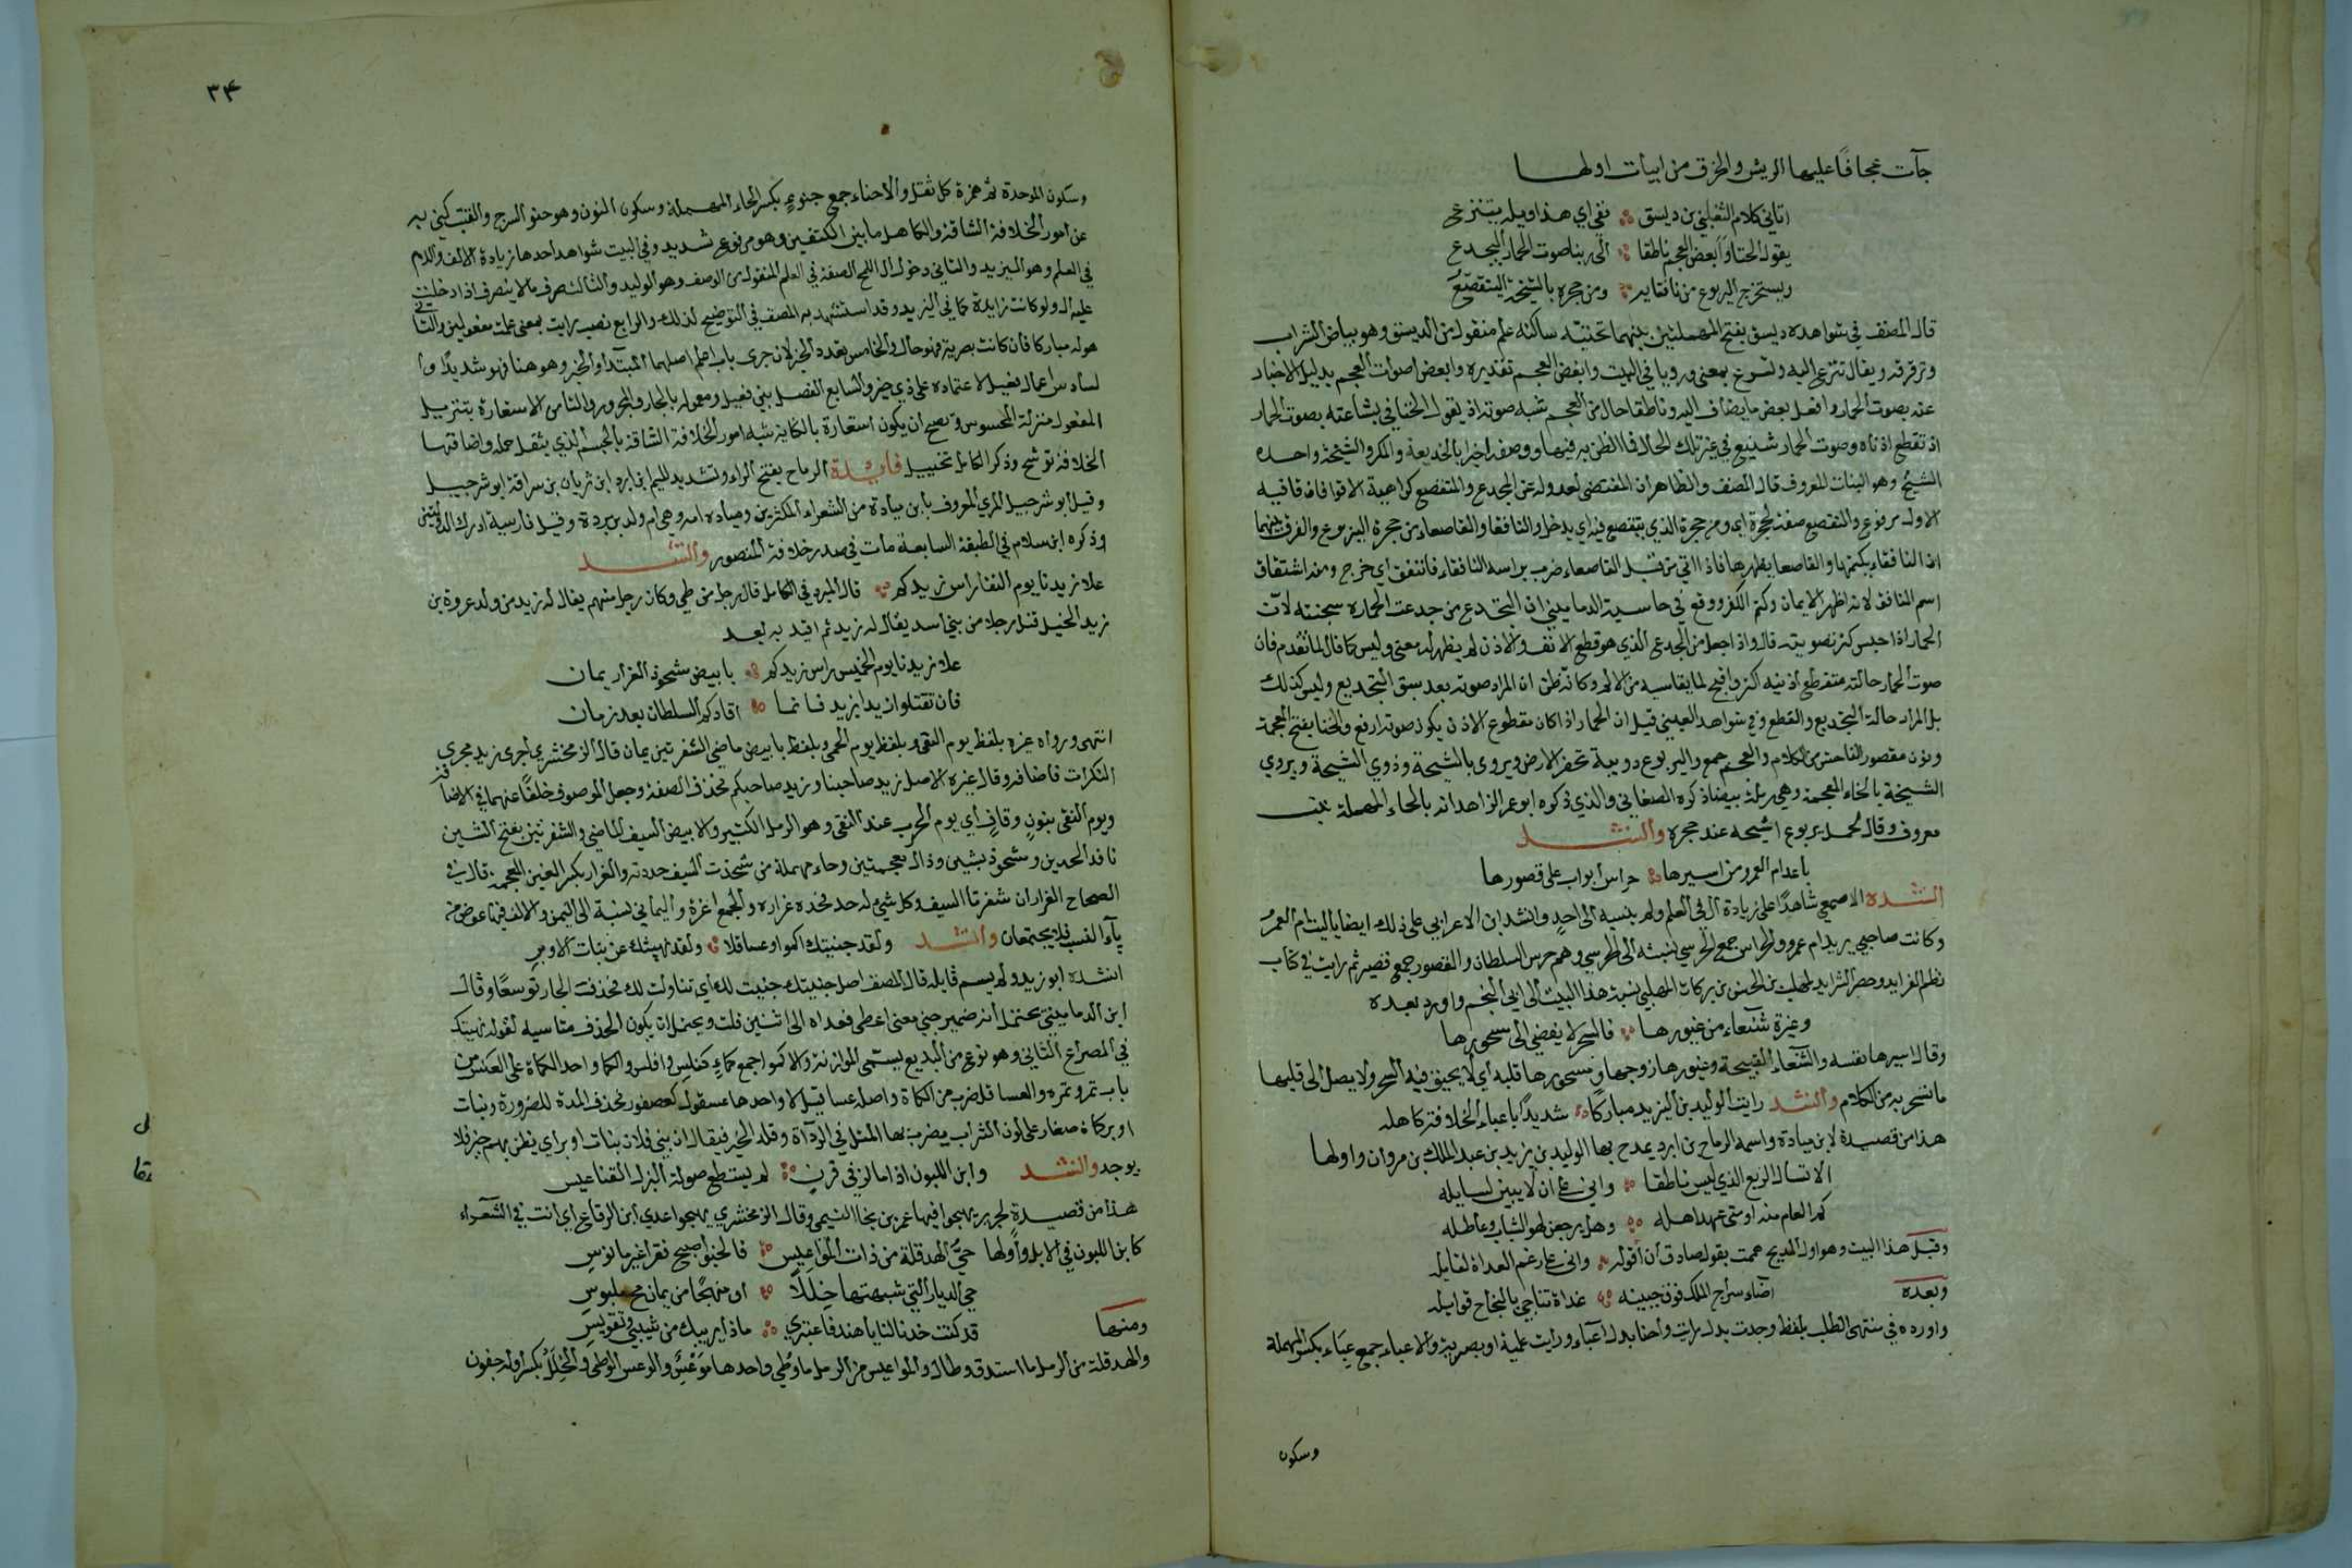 جآت عجافًا عليها الريش والخرق من ابيات اولها
اتاني كلام الثعلبي بن ديسق ففي اي هذا ويله يتترع
يقول الخنا وابغض العجم ناطقا الى ربنا صوت الحمار اليجدع
ويستخرج اليربوع من نافقايه ومن جحره بالشيخة اليتقصع
قال المصنف في شواهده ديسق بفتح المهملتين بينهما تحتية ساكنة علم منقول من الديسق وهو بياض السراب
وترقرقه ويقال تترع اليه وتسرع بمعنى ورويا في البيت وابغض العجم تقديره وابغض اصوات العجم بدليل الاخبار
عنه بصوت الحمار وافعل بعض ما يضاف اليه وناطقا حال من العجم شبه صوته اذ يقول الخنا في بشاعته بصوت الحمار
اذ تقطع اذناه وصوت الحمار شنيع في غير تلك الحال فما الظن به فيها ووصفه اخيرا بالخديعة والمكر والشيخة واحده
الشيح وهو النبات المعروف قال المصنف والظاهر ان المقتضى لعدوله عن المجدع والمتقصع كراهية الاقوا فان قافية
الاول مرفوع والتقصيع صفة لجحره اي ومن جحره الذي يتقصع فيه اي يدخل والنافقا والقاصعاء من جحرة اليربوع والفرق بينهما
ان النافقاء يكتمها والقاصعا يظهرها فاذا اتي من قبل القاصعاء ضرب براسه النافقاء فانتفق اي خرج ومنه اشتقاق
اسم المنافق لانه اظهر الايمان وكتم الكفر ووقع في حاشية الدماميني ان اليجدع من جدعت الحمار سجنته لان
الحمار اذا حبس كثر تصويته قال واذ اجعل من الجدع الذي هو قطع الانف والاذن لم يظهر له معنى وليس كما قال لما تقدم فان
صوت الحمار حالة تقطع اذنيه اكثر واقبح لما يقاسيه من الالم وكانه ظن ان المراد صوته بعد سبق التجديع وليس كذلك
بل المراد حالة التجديع والقطع وفي شواهد العيني قيل ان الحمار اذا كان مقطوع الاذن يكون صوته ارفع والخنا بفتح المعجمة
ونون مقصور الفاحش من الكلام والعجم جمع واليربوع دويبة تحفر الارض ويروى بالشيحة وذوي الشيحة ويروي
الشيخة بالخاء المعجمة وهي رملة بيضا ذكره الصغاني والذي ذكره ابو عمر الزاهد انه بالحاء المهملة نبت
معروف وقال لحمل يربوع اشيحه عند جحره وانشد
باعد ام العمرو من اسيرها حراس ابواب على قصورها
انشده الاصمعي شاهدًا على زيادة ال في العلم ولم ينسبه الى احدٍ وانشد ابن الاعرابي على ذلك ايضا يا ليت ام العمرُ
وكانت صاحبي يريد ام عمرو والحراس جمع الحرسي نسبة الى الحرس وهم حرس السلطان والقصور جمع قصر ثم رايت في كتاب
نظم الفرايد وحصر الشرايد لمهلب بن الحسن بن بركات المهلبي نسبة هذا البيت الى ابي النجم واورد بعده
وغيرة شنعاء من غيورها فالسحر لا يفضي الى سحورها
وقال اسيرها نفسه والشنعاء القبيحة وغيورها زوجها وسحورها قلبه اي لا يحيق فيه السحر ولا يصل الى قلبها
ما تسحر به من الكلام وانشد رايت الوليد بن اليزيد مباركًا شديدًا باعباء الخلافة كاهله
هذا من قصيدة لابن ميادة واسمه الرماح بن ابرد يمدح بها الوليد بن يزيد بن عبد الملك بن مروان واولها
الا تسال الربع الذي ليس ناطقا واني على ان لا يبين لسايله
كم العام منه او متى عهد اهله وهل يرجعن لهو الشباب وعاطله
وقبل هذا البيت وهو اول المديح هممت بقول صادق ان اقوله واني على رغم العداة لقايله
وبعده اضاء سراج الملك فوق جبينه غداة تناجى بالنجاح قوابله
واورده في منتهى الطلب بلفظ وجدت بدل رايت واحنا بدل اعباء ورايت علمية او بصرية والاعباء جمع عباء بكسر المهملة
وسكون
٣٤
وسكون الموحدة ثم همزة كل ثقل والاحناء جمع حنو بكسر الحاء المهملة وسكون النون وهو حنو السرج والقتب كني به
عن امور الخلافة الشاقة والكاهل ما بين الكتفين وهو مرفوع شديد وفي البيت شواهد احدها زيادة الالف واللام
في العلم وهو اليزيد والثاني دخول ال للمح الصفة في العلم المنقول من الوصف وهو الوليد والثالث صرف ما لا ينصرف اذا دخلت
عليه ال ولو كانت زايدة كما في اليزيد وقد استشهد به المصنف في التوضيح لذلك والرابع نصب رايت بمعنى علمت مفعولين والثاني
هو له مباركا فان كانت بصرية فهو حال والخامس تعدد الخبر لان جرى باب علم اصلهما المبتدا والخبر وهو هنا قوله شديدًا وا
لسادس اعمال فعيل لاعتماده على ذي خبر والسابع الفصل بين فعيل ومعموله بالجار والمجرور والثامن الاستعارة بتنزيل
المعقول منزلة المحسوس ويصح ان يكون استعارة بالكناية شبه امور الخلافة الشاقة بالجسم الذي يثقل حمله واضافتها
الخلافة توشيح وذكر الكامل تخييل فايدة الرماح بفتح الراء وتشديد الميم ابن ابرد ابن ثريان بن سراقة ابو شرحبيل
وقيل ابو شرحبيل المري المعروف بابن ميادة من الشعراء المكثرين وميادة امه وهي ام ولد بربرية وقيل فارسية ادرك الدولتين
وذكره ابن سلام في الطبقة السابعة مات في صدر خلافة المنصور وانشد
علا زيدنا يوم النقا راس زيدكم قال المبرد في الكامل قال رجل من طي وكان رجل منهم يقال له زيد من ولد عروة بن
زيد الخيل قتل رجلا من بني اسد يقال له زيد ثم اقيد به بعد
علا زيدنا يوم الخميس راس زيدكم بابيض مشحوذ الغرار يمان
فان تقتلوا زيدا بزيد فانما اقادكم السلطان بعد زمان
انتهى ورواه غيره بلفظ يوم النقى وبلفظ يوم الحمى وبلفظ بابيض ماضي الشفرتين يمان قال الزمخشري اجرى زيد مجرى
النكرات فاضافه وقال غيره الاصل زيد صاحبنا وزيد صاحبكم فحذف الصفة وجعل الموصوف خلفًا عنهما في الاضافة
ويوم النقى بنون وقاف اي يوم الحرب عند النقى وهو الرمل الكثير والابيض السيف الماضي والشفرتين بفتح الشين
نافذ الحدين ومشحوذ بشين وذال معجمتين وحاء مهملة من شحذت السيف حددته والغرار بكسر الغين المعجمة قال في
الصحاح الغراران شفرتا السيف وكل شي له حد فحده غراره والجمع اغرة واليماني نسبة الى اليمن والالف فيها عوض من
ياء النسب فلا يجتمعان وانشد ولقد جنيتك اكموا وعساقلا ولقد نهيتك عن بنات الاوبر
انشده ابو زيد ولم يسم قايله قال المصنف اصل جنيتك جنيت لك اي تناولت لك فحذف الجار توسعًا وقال
ابن الدماميني يحتمل انه ضمير جني معنى اعطى فعداه الى اثنين قلت ويحتمل ان يكون الحذف مناسبة لقوله نهيتك
في المصراع الثاني وهو نوع من البديع يسمى الموازنة والاكموا جمع كماء كفلس وافلس والكما واحد الكماة على العكس من
باب تمر وتمرة والعساقل ضرب من الكماة واصله عساقيل لان واحدها عسقول كعصفور فحذف المدة للضرورة وبنات
اوبر كماة صغار على لون التراب يضرب بها المثل في الرداة وقلة الخير فيقال ان بني فلان بنات اوبر اي يظن بهم خير فلا
يوجد وانشد وابن اللبون اذا ما لز في قرن لم يستطع صولة البزل القناعيس
هذا من قصيدة لجرير يهجوا فيها عمر بن لجا التيمي وقال الزمخشري يهجوا عدي ابن الرقاع اي انت في الشعراء
كابن اللبون في الابل واولها حي الهدملة من ذات المواعيس فالحنو اصبح قفرا غير مانوس
حي الديار التي شبهتها خللًا او منهجًا من يمان مح ملبوس
ومنها قد كنت خدنا لنا يا هند فاعتبري ماذا يريبك من شيبي وتقويس
والهدملة من الرمل ما استدق وطال والمواعيس من الرمل ما وطي واحدها موعس والوعس الوطي والخلل بكسر اوله جفون